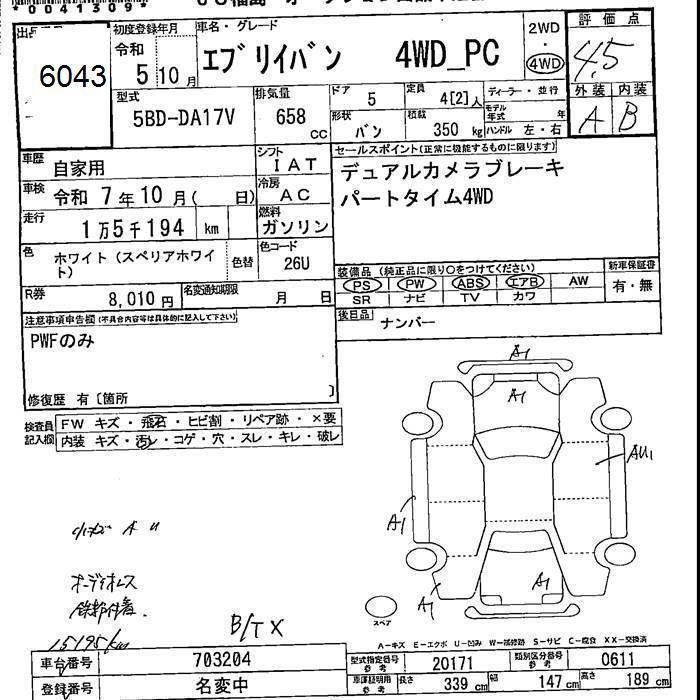 6043
初度登録年月
令和
5 10月
車名・グレード
エブリイバン 4WD_PC
2WD
4WD
評価点
4.5
外装 内装
A B
型式
5BD-DA17V
排気量
658
CC
ドア
5
定員
4[2]人
ディーラー・並行
形状
バン
積載
350 kg
モデル年式 年
ハンドル 左・右
車歴
自家用
シフト
IAT
車検
令和 7年10月( 日)
冷房
AC
走行
1万5千194 km
燃料
ガソリン
色
ホワイト (スペリアホワイト)
色替
色コード
26U
R券
8,010円
名変通知期限
月 日
セールスポイント(正常に機能するものに限ります)
デュアルカメラブレーキ
パートタイム4WD
装備品 (純正品に限り○をつけてください)
PS PW ABS エアB AW
SR ナビ TV カワ
新車保証書
有・無
後日品
ナンバー
注意事項申告欄(不具合内容等は具体的に記入して下さい)
PWFのみ
修復歴 有〔箇所 〕
検査員記入欄
FW キズ・飛石・ヒビ割・リペア跡・×要
内装 キズ・汚レ・コゲ・穴・スレ・キレ・破レ
A1
A1
AU1
A1
A1
A1
スペア
オーディオレス
15195km
B/TX
A-キズ E-エクボ U-凹み W-補修跡 S-サビ C-腐食 XX-交換済
車台番号
703204
型式指定番号 参考
20171
類別区分番号 参考
0611
登録番号
名変中
車庫証明用 参考
長さ 339 cm
幅 147 cm
高さ 189 cm